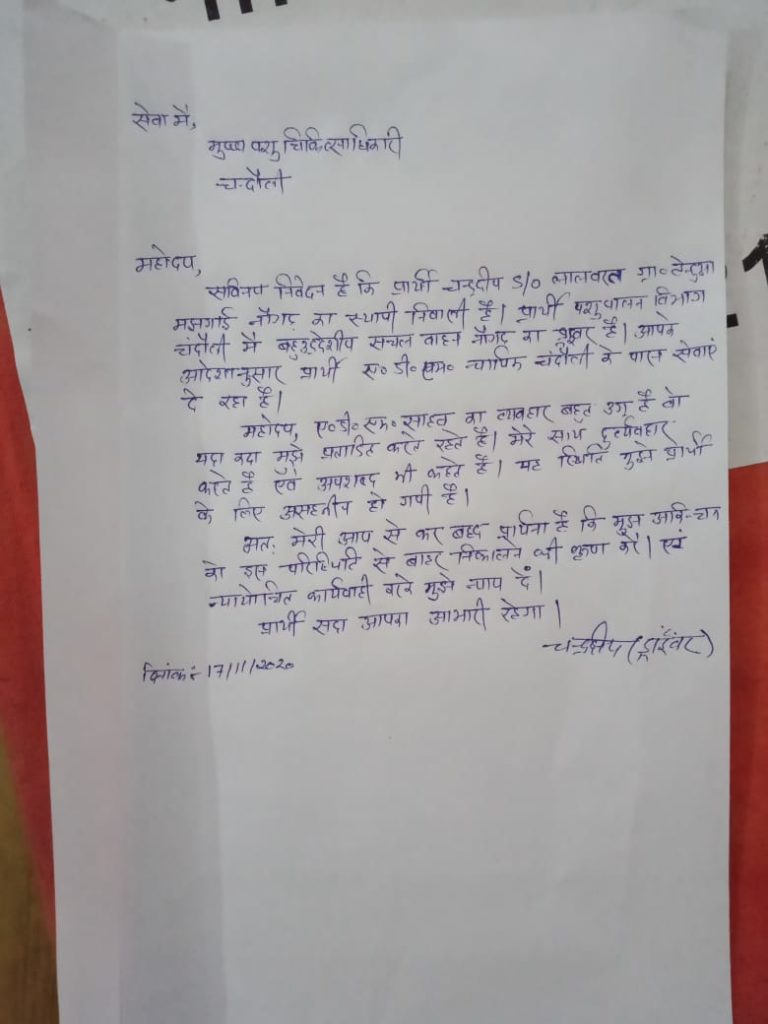 सेवा मै,
मुख्य पशु चिकित्साधिकारी
चन्दौली
महोदय,
सविनय निवेदन है कि प्रार्थी चन्द्रदीप S/० लालवरत ग्रा०
मझगाई नौगढ़ का स्थायी निवासी है। प्रार्थी पशुपालन विभाग
चंदौली मै बहुउद्देशीय सचल वाहन नौगढ़ का है। आपके
आदेशानुसार प्रार्थी ए० डी० एम० न्यायिक चंदौली के पास सेवाएं
दे रहा है।
महोदय, ए०डी०एम० साहब का व्यवहार बहुत उग्र है वो
यदा कदा मुझे प्रताडित करते रहते है। मेरे साथ दुर्व्यवहार
करते है एवं अपशब्द भी कहते है। यह स्थिति मुझे प्रार्थी
के लिए असहनीय हो गयी है।
अतः मेरी आप से कर बद्ध प्रार्थना है कि मुझ अकिन्चन
को इस परिस्थिति से बाहर निकालने की कृपा करें। एवं
न्यायोचित कार्यवाही करके मुझे न्याय दें।
प्रार्थी सदा आपका आभारी रहेगा।
चन्द्रदीप (ड्राईवर)
दिनांक: 17/11/2020